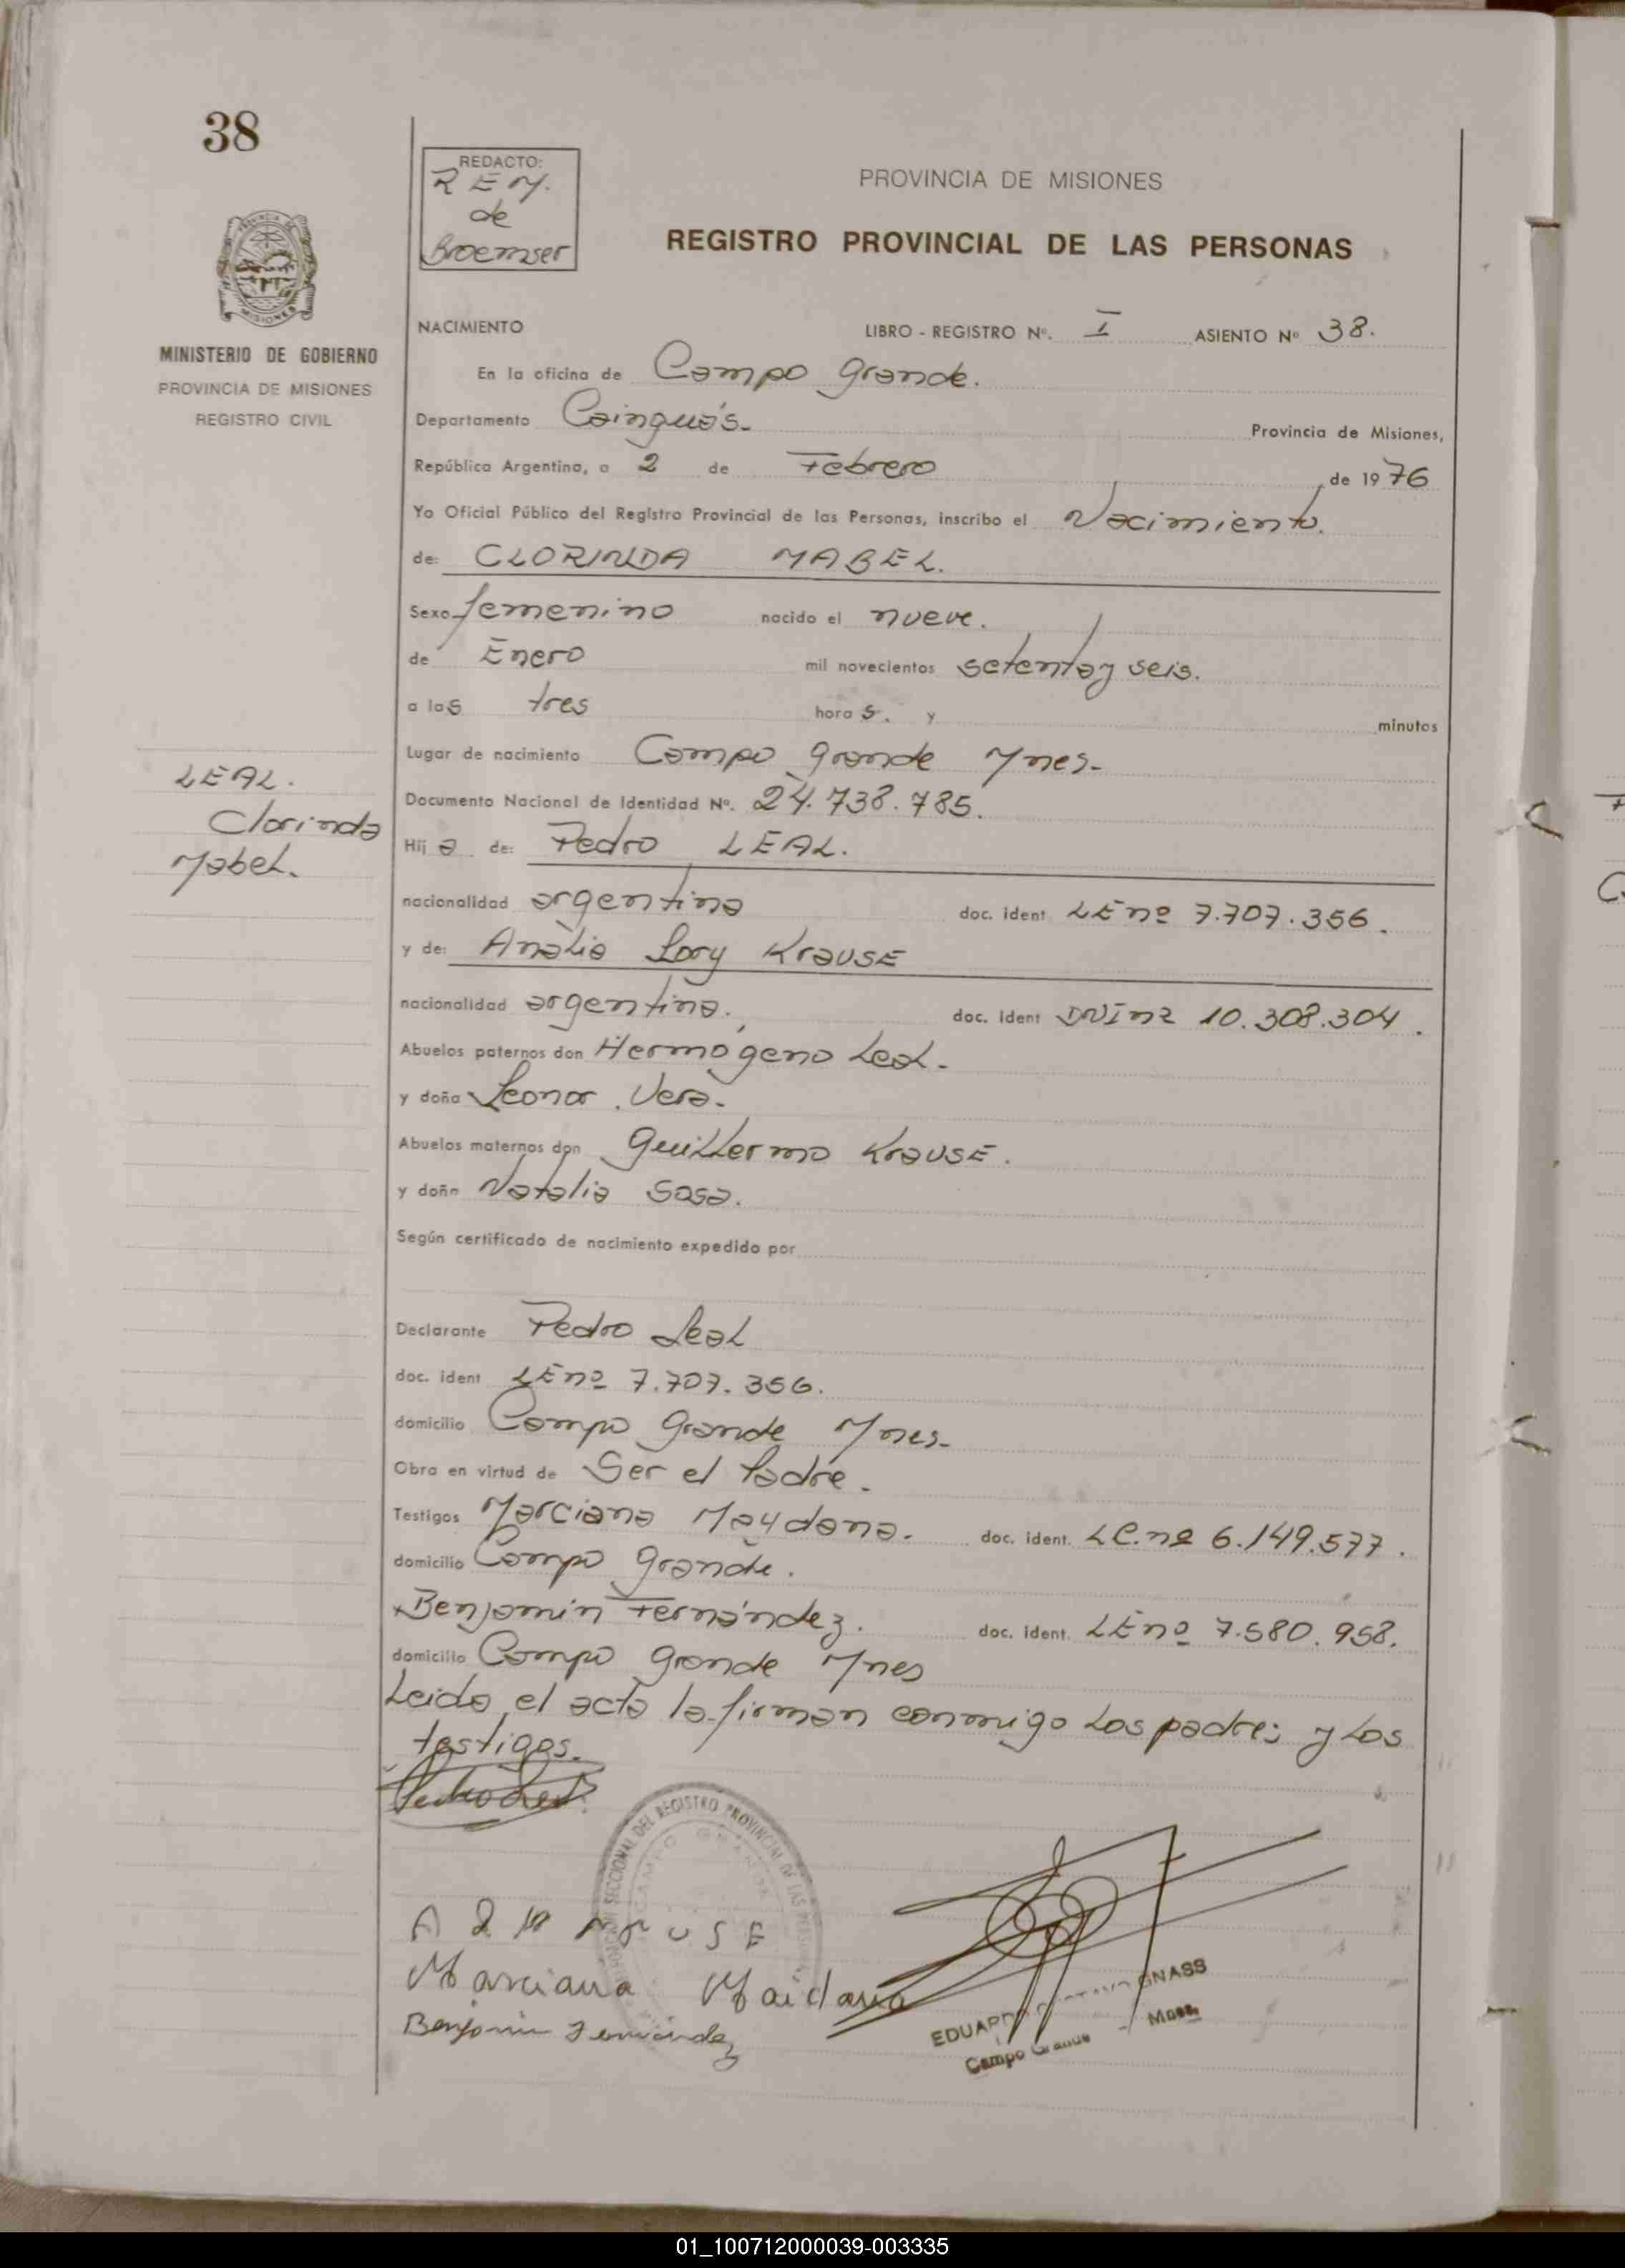 38
REDACTO:
REM.
de
Broemser
PROVINCIA DE MISIONES
REGISTRO PROVINCIAL DE LAS PERSONAS
MINISTERIO DE GOBIERNO
PROVINCIA DE MISIONES
REGISTRO CIVIL
NACIMIENTO LIBRO - REGISTRO Nº. I ASIENTO Nº 38.
En la oficina de Campo Grande.
Departamento Cainguás. Provincia de Misiones,
República Argentina, a 2 de Febrero de 1976
Yo Oficial Público del Registro Provincial de las Personas, inscribo el Nacimiento.
de: CLORINDA MABEL.
Sexo femenino nacido el nueve.
de Enero mil novecientos setenta y seis.
a las tres horas. y minutos
Lugar de nacimiento Campo Grande Mnes.
Documento Nacional de Identidad Nº. 24.738.785.
LEAL.
Clorinda
Mabel.
Hija de: Pedro LEAL.
nacionalidad argentina doc. ident LE nº 7.707.356.
y de: Analia Lory KrausE
nacionalidad argentina. doc. ident DNI nº 10.308.304.
Abuelos paternos don Hermógeno Leal.
y doña Leonor Vera.
Abuelos maternos don Guillermo KrausE.
y doña Natalia Sosa.
Según certificado de nacimiento expedido por
Declarante Pedro Leal
doc. ident LE nº 7.707.356.
domicilio Campo Grande Mnes.
Obra en virtud de Ser el Padre.
Testigos Marciana Maydana. doc. ident. LC. nº 6.149.577.
domicilio Campo Grande.
Benjamín Fernández. doc. ident. LE nº 7.580.958.
domicilio Campo Grande Mnes
Leida el acta la firman conmigo los padres y los
testigos.
Pedro Leal
REGISTRO PROVINCIAL DE LAS
CAMPO GRANDE
Marciana Maidana
Benjamin Fernández
EDUARDO GNASS
Campo Grande - Mnes.
01_100712000039-003335